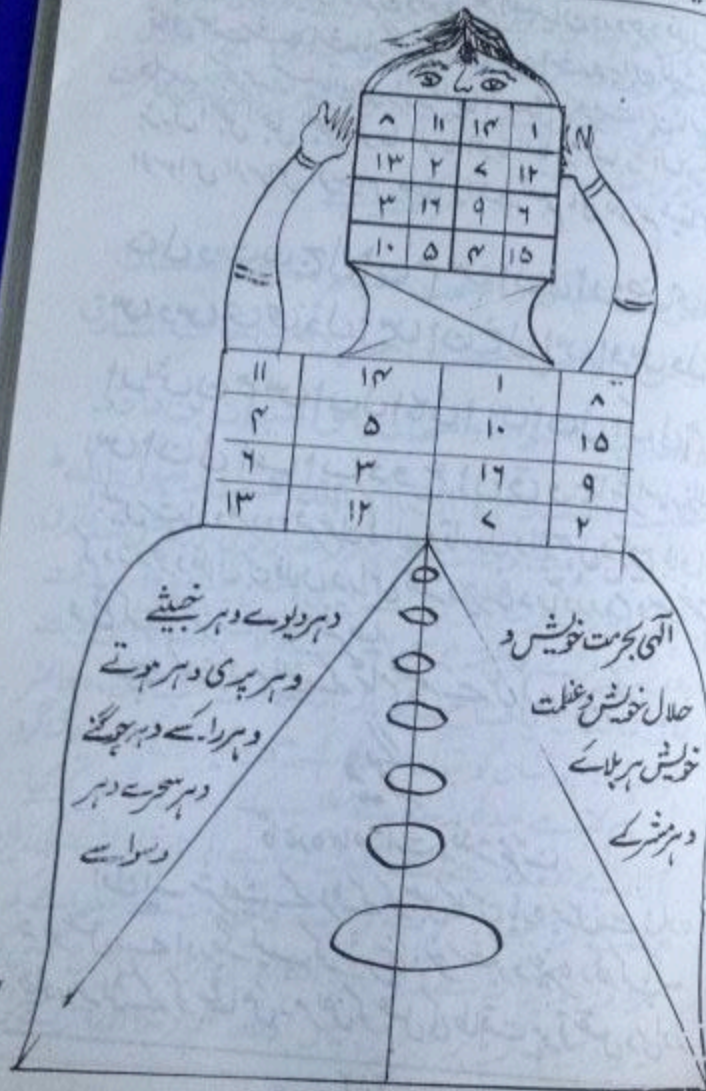 ۸ ۱۱ ۱۴ ۱
۱۳ ۲ ۷ ۱۲
۳ ۱۶ ۹ ۶
۱۰ ۵ ۴ ۱۵
۱۱ ۱۴ ۱ ۸
۴ ۵ ۱۰ ۱۵
۶ ۳ ۱۶ ۹
۱۳ ۱۲ ۷ ۲
الٰہی بحرمت خویش و
جلال خویش و عظمت
خویش ہر بلائے
و ہر مشرکے
و ہر دیوے و ہر خبیثے
و ہر پری و ہر بھوتے
و ہر راکسے و ہر
و ہر سحرے و ہر
وسواسے